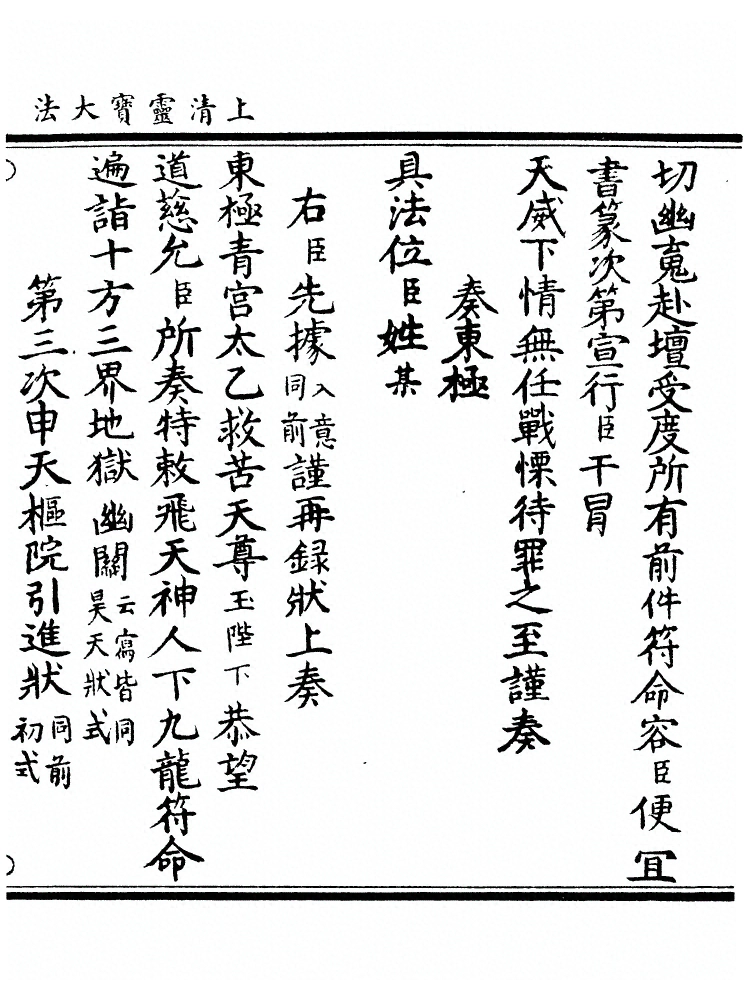 上清靈寶大法
切幽䰟赴壇受度所有前件符命容臣便宜
書篆次第宣行臣干冒
天威下情無任戰慄待罪之至謹奏
奏東極
具法位臣姓某
右臣先據入意同前謹再録狀上奏
東極青宮太乙救苦天尊玉陛下恭望
道慈允臣所奏特敕飛天神人下九龍符命
遍詣十方三界地獄幽關云寫皆同昊天狀式
第三次申天樞院引進狀同前初式